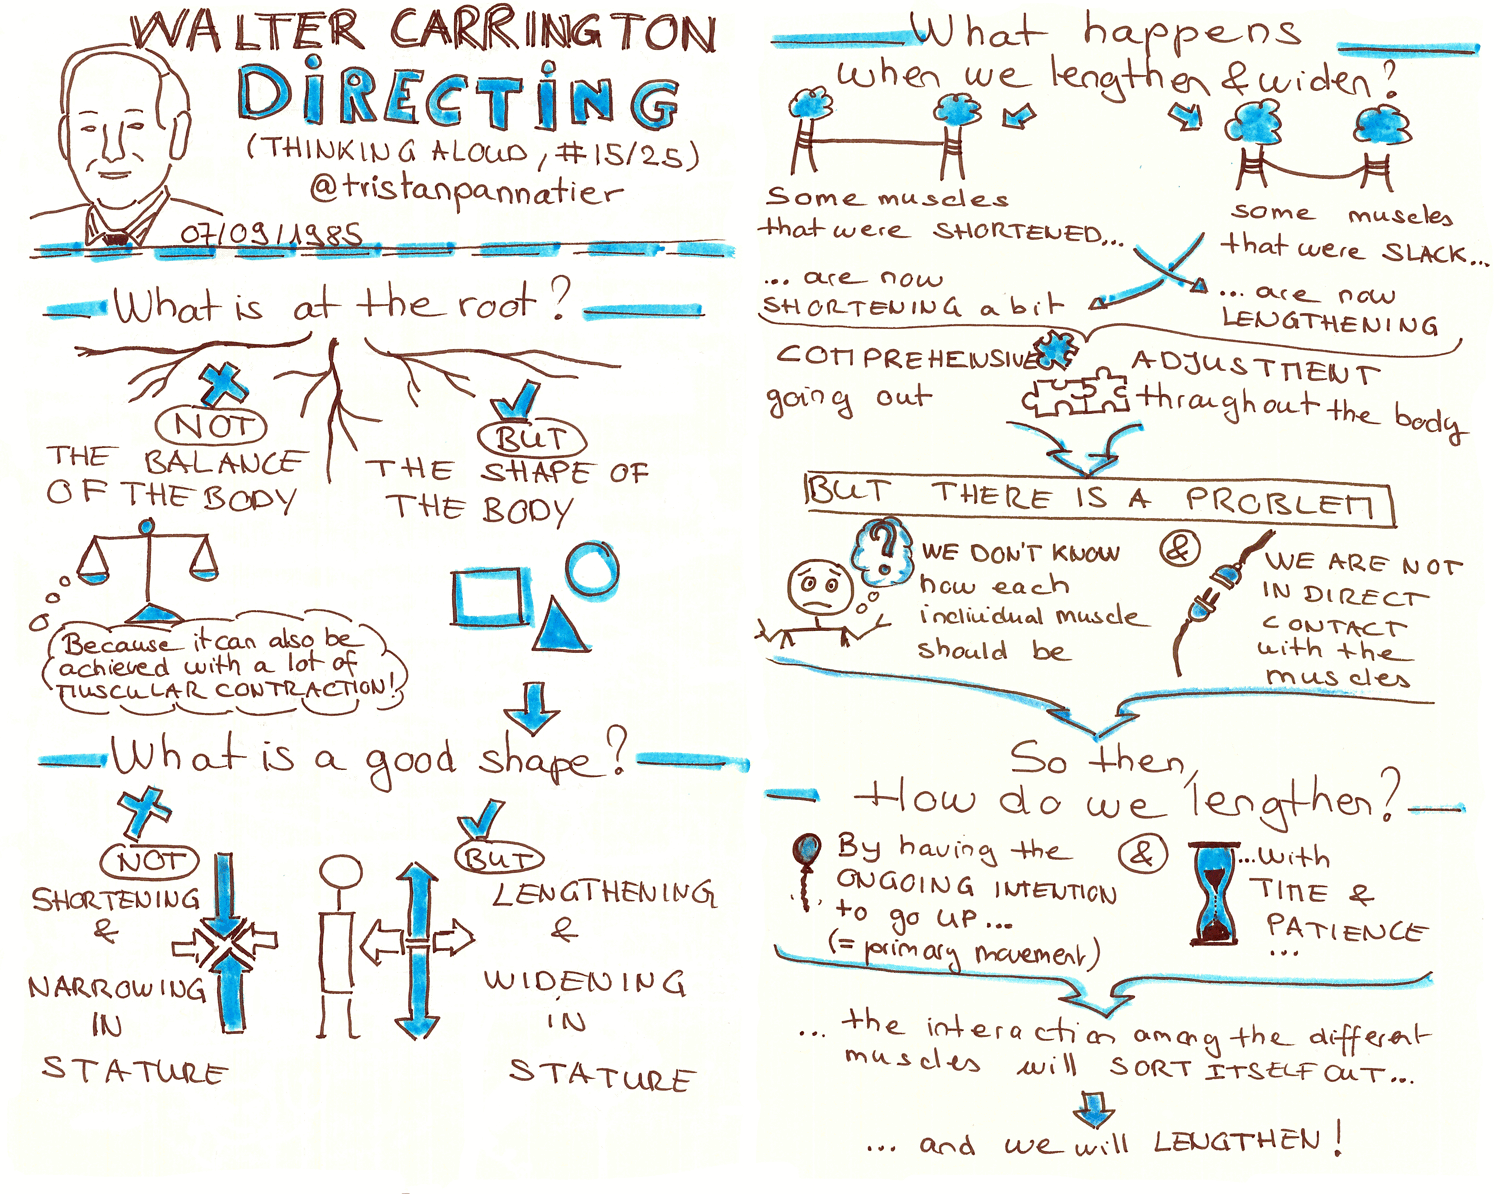 WALTER CARRINGTON
DIRECTING
(THINKING ALOUD, #15/25)
@tristanpannatier
07/09/1985
What is at the root?
NOT
THE BALANCE
OF THE BODY
BUT
THE SHAPE OF
THE BODY
Because it can also be
achieved with a lot of
MUSCULAR CONTRACTION!
What is a good shape?
NOT
SHORTENING
&
NARROWING
IN
STATURE
BUT
LENGTHENING
&
WIDENING
IN
STATURE
What happens
when we lengthen & widen?
Some muscles
that were SHORTENED...
some muscles
that were SLACK...
... are now
SHORTENING a bit
... are now
LENGTHENING
COMPREHENSIVE ADJUSTMENT
going out throughout the body
BUT THERE IS A PROBLEM
?
WE DON'T KNOW
how each
individual muscle
should be
&
WE ARE NOT
IN DIRECT
CONTACT
with the
muscles
So then,
How do we lengthen?
By having the
ONGOING INTENTION
to go UP...
(= primary movement)
&
...with
TIME &
PATIENCE
...
... the interaction among the different
muscles will SORT ITSELF OUT...
... and we will LENGTHEN!